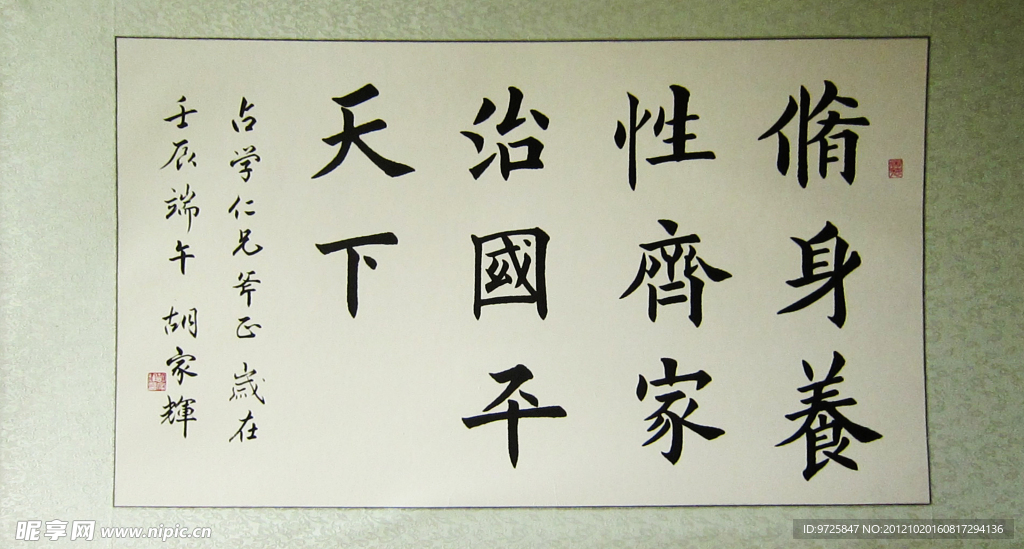 脩身養
性齊家
治國平
天下
占学仁兄斧正 歲在
壬辰端午 胡家輝
昵享网 www.nipic.cn
ID:9725847 NO:20121020160817294136